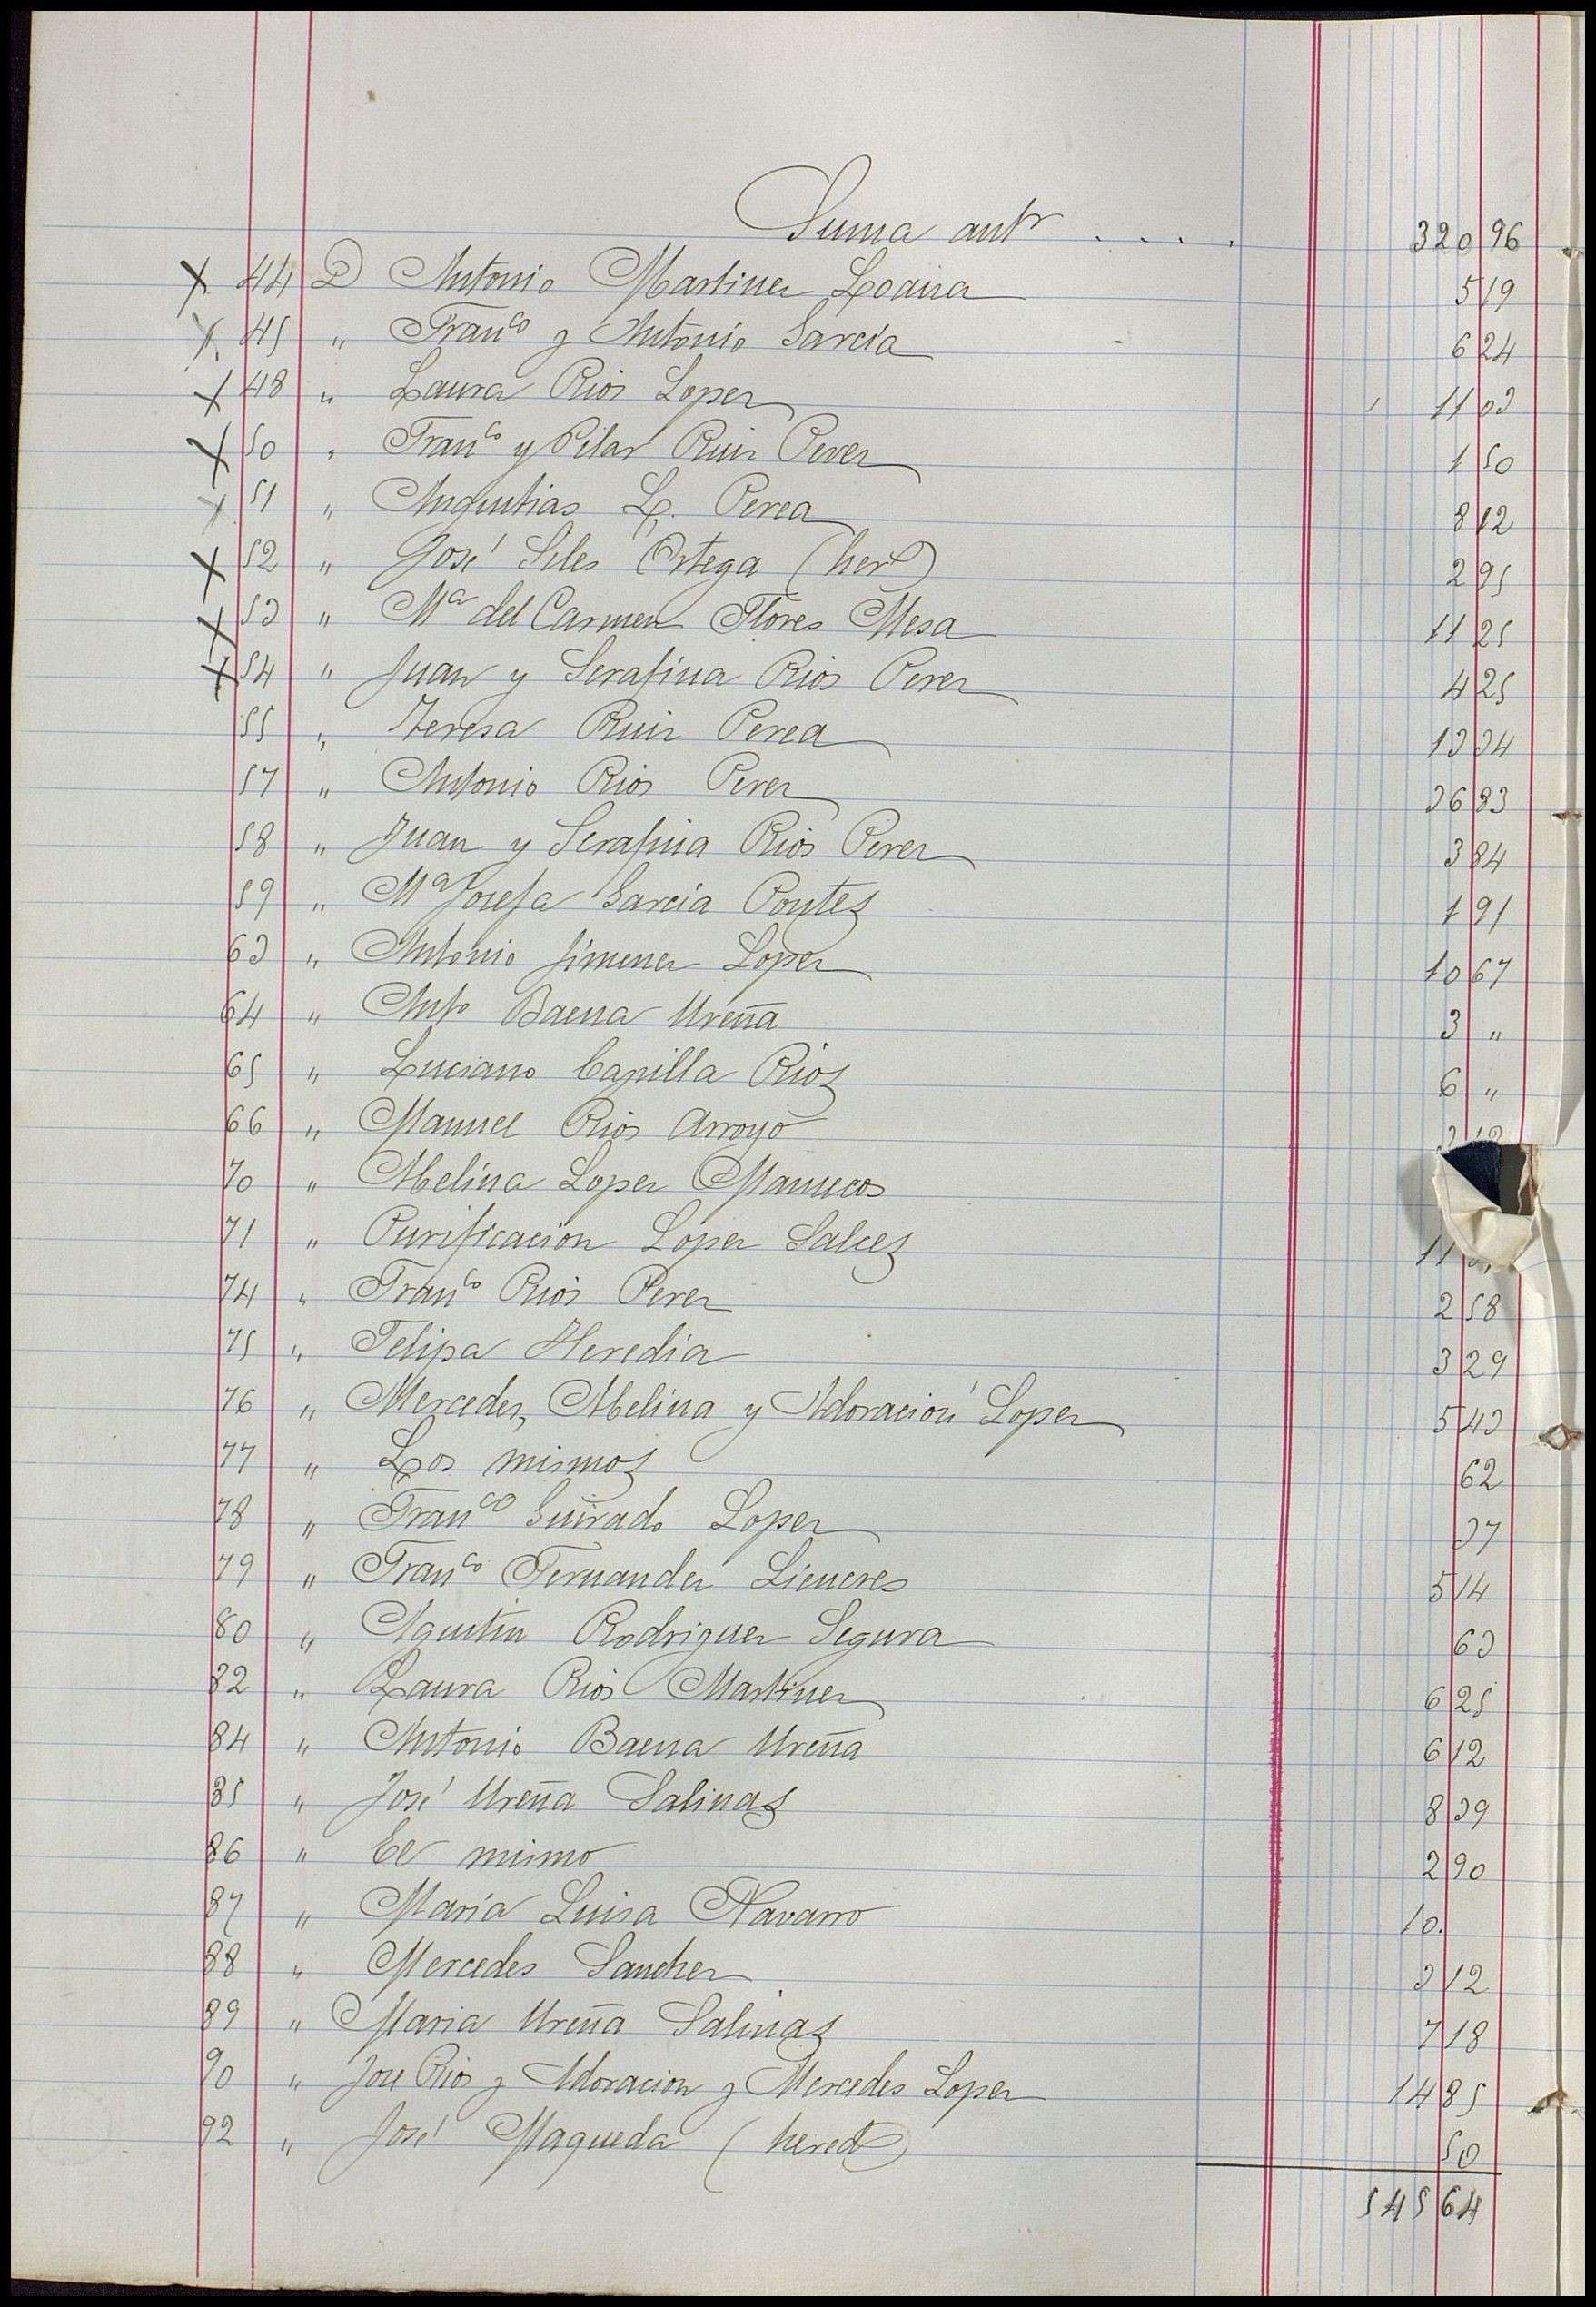 Suma antr . . . . 320 96
X 44 D Antonio Martinez Loaiza 5 19
X 45 " Franco y Antonio Garcia 6 24
X 48 " Laura Rios Lopez 11 03
X 50 " Franco y Pilar Ruiz Perez 1 50
X 51 " Angustias L. Perea 8 12
X 52 " José Siles Ortega (hero) 2 95
X 53 " Ma del Carmen Flores Mesa 11 25
X 54 " Juan y Serafina Rios Perez 4 25
55 " Teresa Ruiz Perea 13 34
57 " Antonio Rios Perez 36 83
58 " Juan y Serafina Rios Perez 3 84
59 " Ma Josefa Garcia Pontes 1 91
63 " Antonio Jimenez Lopez 10 67
64 " Anto Baena Ureña 3 "
65 " Luciano Capilla Rios 6 "
66 " Manuel Rios Arroyo
70 " Abelina Lopez Mamecos
71 " Purificacion Lopez Salces 11
74 " Franco Rios Perez 2 58
75 " Felipa Heredia 3 29
76 " Mercedes, Abelina y Adoración Lopez 5 43
77 " Los mismos 62
78 " Franco Guirado Lopez 37
79 " Franco Fernandez Liencres 5 14
80 " Agustin Rodriguez Segura 63
82 " Laura Rios Martinez 6 25
84 " Antonio Baena Ureña 6 12
85 " José Ureña Salinas 8 39
86 " El mismo 2 90
87 " Maria Luisa Navarro 10.
88 " Mercedes Sanchez 3 12
89 " Maria Ureña Salinas 7 18
90 " Jose Rios y Adoracion y Mercedes Lopez 14 85
92 " José Maqueda (hered) 50
545 64